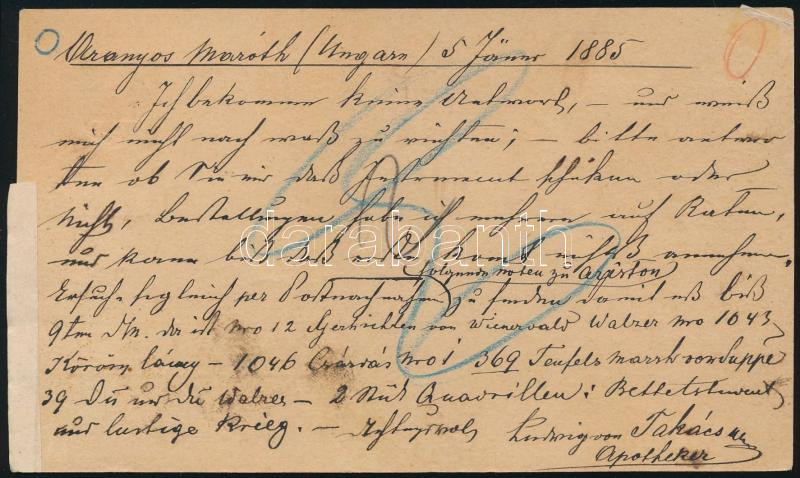 Aranyos Maróth (Ungarn) 5 Jäner 1885
Ich bekomme keine Antwort, – und weiß
mich nicht nach waß zu richten; – bitte antwor
ten ob Sie mir daß Instrument schiken oder
nicht, Bestellungen habe ich mehrere auf Raten,
und kann biß daß nicht annehmen.
folgende noten zu Ariston
Ersuche sogleich per Postnachnahme zu senden damit eß biß
9ten Dß. da ist nro 12 Geschichten von Wienerwald Walzer nro 1043
Körösi lány – 1046 Czárdás nro 1 369 Teufels marsch von Suppe
39 Du und Du Walzer – 2 Stük Quadrillen: Bettelstudent
und lustige Krieg. – Achtungsvoll Ludwig von Takács
Apotheker
darabanth